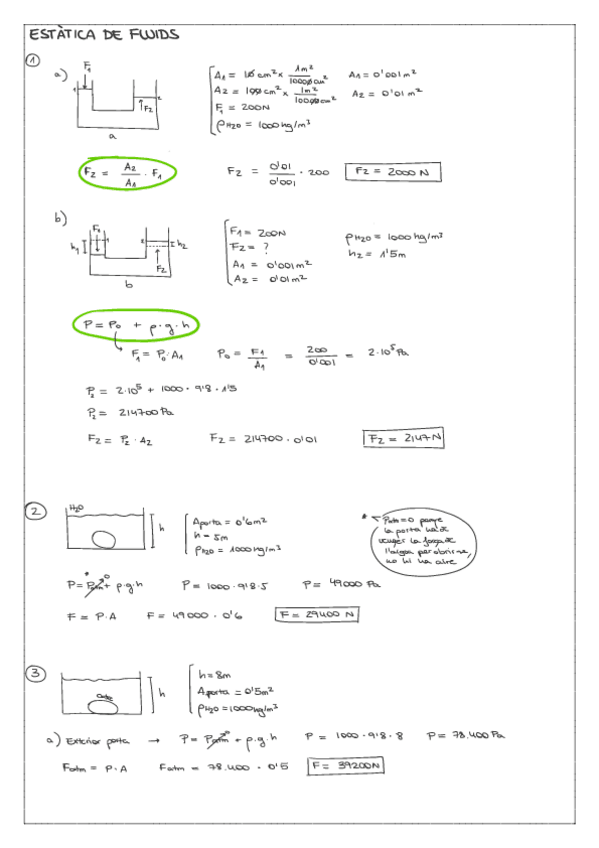 ESTÀTICA DE FLUIDS
1
a)
F1
1
2
F2
a
A1 = 10 cm² x 1m² / 10000 cm²   A1 = 0'001 m²
A2 = 100 cm² x 1m² / 10000 cm²   A2 = 0'01 m²
F1 = 200N
ρH2O = 1000 kg/m³
F2 = A2 / A1 · F1   F2 = 0'01 / 0'001 · 200   F2 = 2000 N
b)
F1
h1
1
2
h2
F2
b
F1 = 200N   ρH2O = 1000 kg/m³
F2 = ?   h2 = 1'5m
A1 = 0'001 m²
A2 = 0'01 m²
P = P0 + ρ·g·h
F1 = P0·A1   P0 = F1 / A1 = 200 / 0'001 = 2·10⁵ Pa
P2 = 2·10⁵ + 1000 · 9'8 · 1'5
P2 = 214700 Pa
F2 = P2 · A2   F2 = 214700 · 0'01   F2 = 2147 N
2
H2O
h
Aporta = 0'6 m²
h = 5m
ρH2O = 1000 kg/m³
* Patm = 0 perquè
la porta ha de
vèncer la força de
l'aigua per obrir-se,
no hi ha aire
P = Patm* 0 + ρ·g·h   P = 1000 · 9'8 · 5   P = 49000 Pa
F = P·A   F = 49000 · 0'6   F = 29400 N
3
h
h = 8m
Aporta = 0'5 m²
ρH2O = 1000 kg/m³
a) Exterior porta → P = Patm 0 + ρ·g·h   P = 1000 · 9'8 · 8   P = 78.400 Pa
Fatm = P·A   Fatm = 78.400 · 0'5   F = 39200N